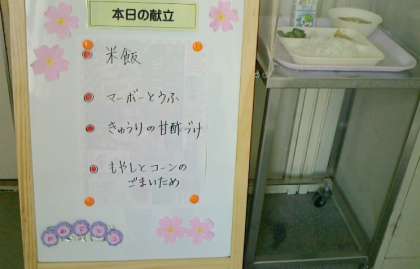 本日の献立
米飯
マーボーとうふ
きゅうりの甘酢づけ
もやしとコーンの
ごまいため